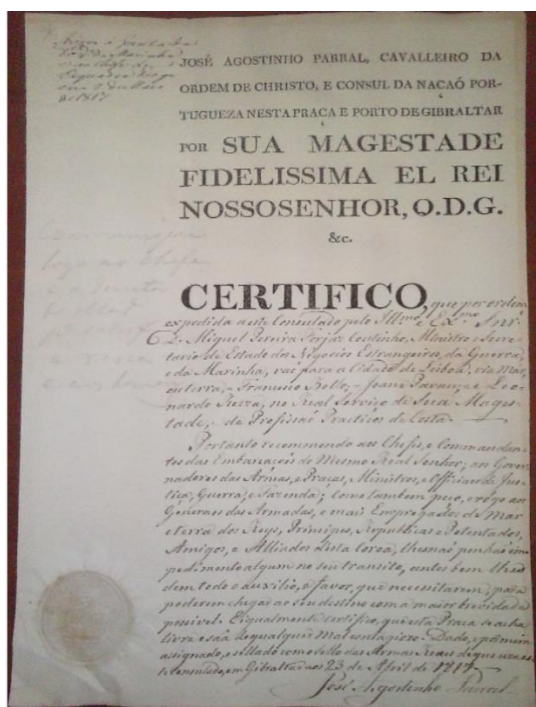 José Agostinho Parral, Cavalleiro da
Ordem de Christo, e Consul da Naçaó Por-
tugueza nesta Praca e Porto de Gibraltar
por SUA MAGESTADE
FIDELISSIMA EL REI
NOSSO SENHOR, Q.D.G.
&c.
CERTIFICO, que por ordem
expedida a este Consulado pelo Illmo. e Exmo. Snr.
D. Miguel Pereira Forjaz Coutinho, Ministro e Secre-
tario de Estado dos Negocios Estrangeiros, da Guerra,
e da Marinha, vai para a Cidade de Lisboa, via Mar,
ou terra, Francisco e Leo-
nardo no Real Serviço de Sua Mages-
tade, de Profissaó Practicos de Costa.
Portanto recommendo aos Chefes, e Commandan-
tes das Embarcaçoés do Mesmo Real Senhor; aos Gover-
nadores das Armas, e Praças, Ministros, e Officiaes de Jus-
tiça, Guerra, e Fazenda; como tambem peço, e rogo aos
Generaes das Armadas, e mais Empregados de Mar
e terra dos Reys, Principes, Republicas e Potentados,
Amigos, e Alliados desta Coroa, lhes naó ponhaó im-
pedimento algum no seu transito, antes bem lhes
dem todo o auxilio, e favor, que necessitarem, para
poderem chegar ao seu destino com a maior brevidade
possivel. E igualmente certifico, que esta Praça se acha
livre e saã de qualquer mal contagiozo. Dado, e por mim
assignado, e sellado com o Sello das Armas Reaes de que uza es-
te Consulado, em Gibraltar aos 23 de Abril de 1817
José Agostinho Parral